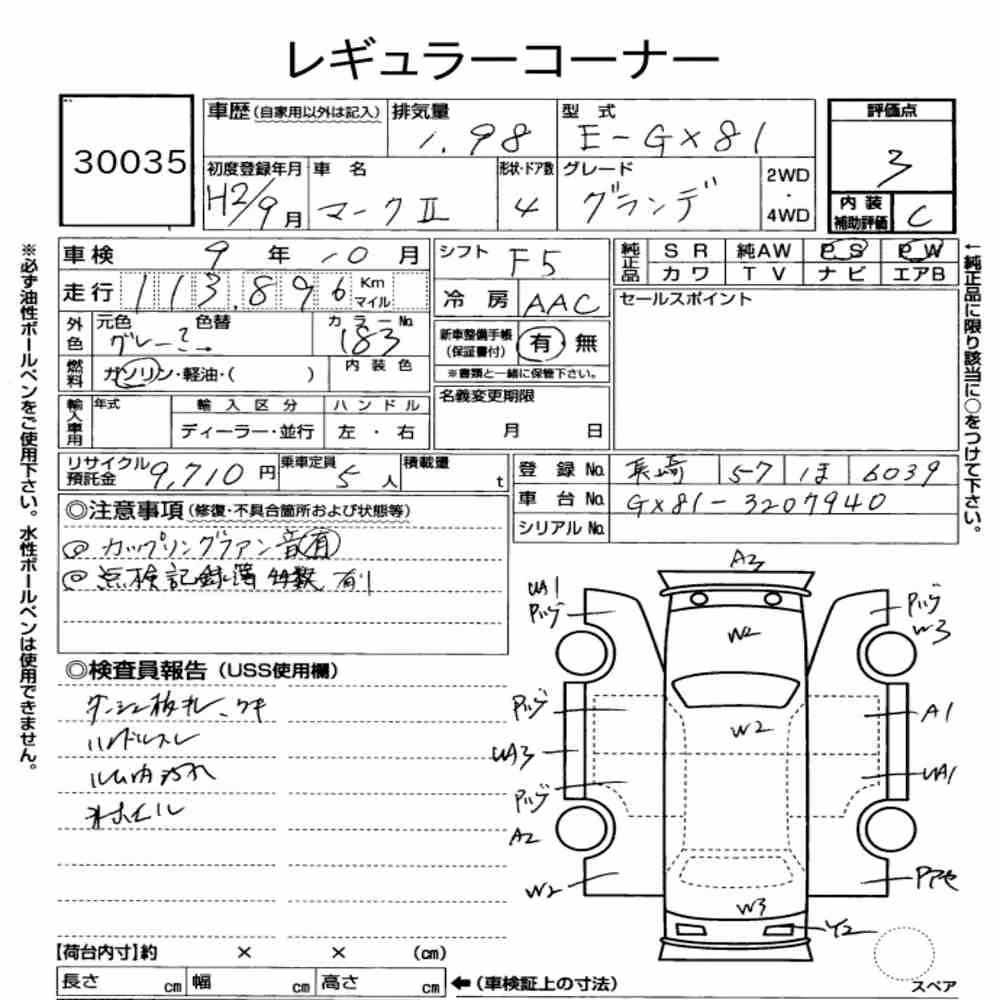 レギュラーコーナー
30035
車歴(自家用以外は記入) 排気量 1.98 型式 E-GX81
初度登録年月 H2/9月 車名 マークⅡ 形状・ドア数 4 グレード グランデ 2WD・4WD
評価点 3
内装補助評価 C
※必ず油性ボールペンをご使用下さい。水性ボールペンは使用できません。
車検 9年 10月
走行 113,896 Km マイル
外色 元色 グレーこ 色替 → カラーNo. 183
燃料 ガソリン・軽油・( ) 内装色
輸入車用 年式 輸入区分 ディーラー・並行 ハンドル 左・右
シフト F5
冷房 AAC
新車整備手帳(保証書付) 有 無
※書類と一緒に保管下さい。
名義変更期限 月 日
純正品 SR 純AW PS PW
カワ TV ナビ エアB
セールスポイント
←純正品に限り該当に○をつけて下さい。
リサイクル預託金 9,710円 乗車定員 5人 積載量 t
登録No. 長崎 57 ほ 6039
車台No. GX81-3207940
シリアルNo.
◎注意事項(修復・不具合箇所および状態等)
◎カップリングファン音有
◎点検記録簿 多数 有り
◎検査員報告(USS使用欄)
ダッシュ板キレ、ウキ
ハンドルスレ
ルーム内汚れ
A3
UA1
Pハゲ
Pハゲ
W3
W2
Pハゲ
W2
A1
UA3
UA1
Pハゲ
A2
W2
W3
Y2
スペア
【荷台内寸】約 × × (cm)
長さ cm 幅 cm 高さ cm ←(車検証上の寸法)